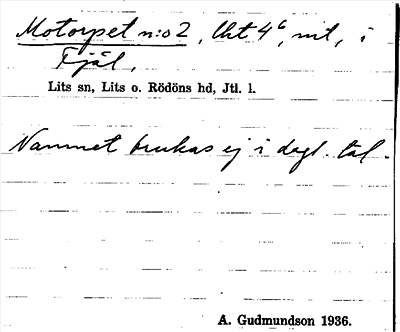 Motorpet n:o 2, lht 4⁶, mil, i
Fjäl,
Lits sn, Lits o. Rödöns hd, Jtl. l.
Namnet brukas ej i dagl. tal.
A. Gudmundson 1936.